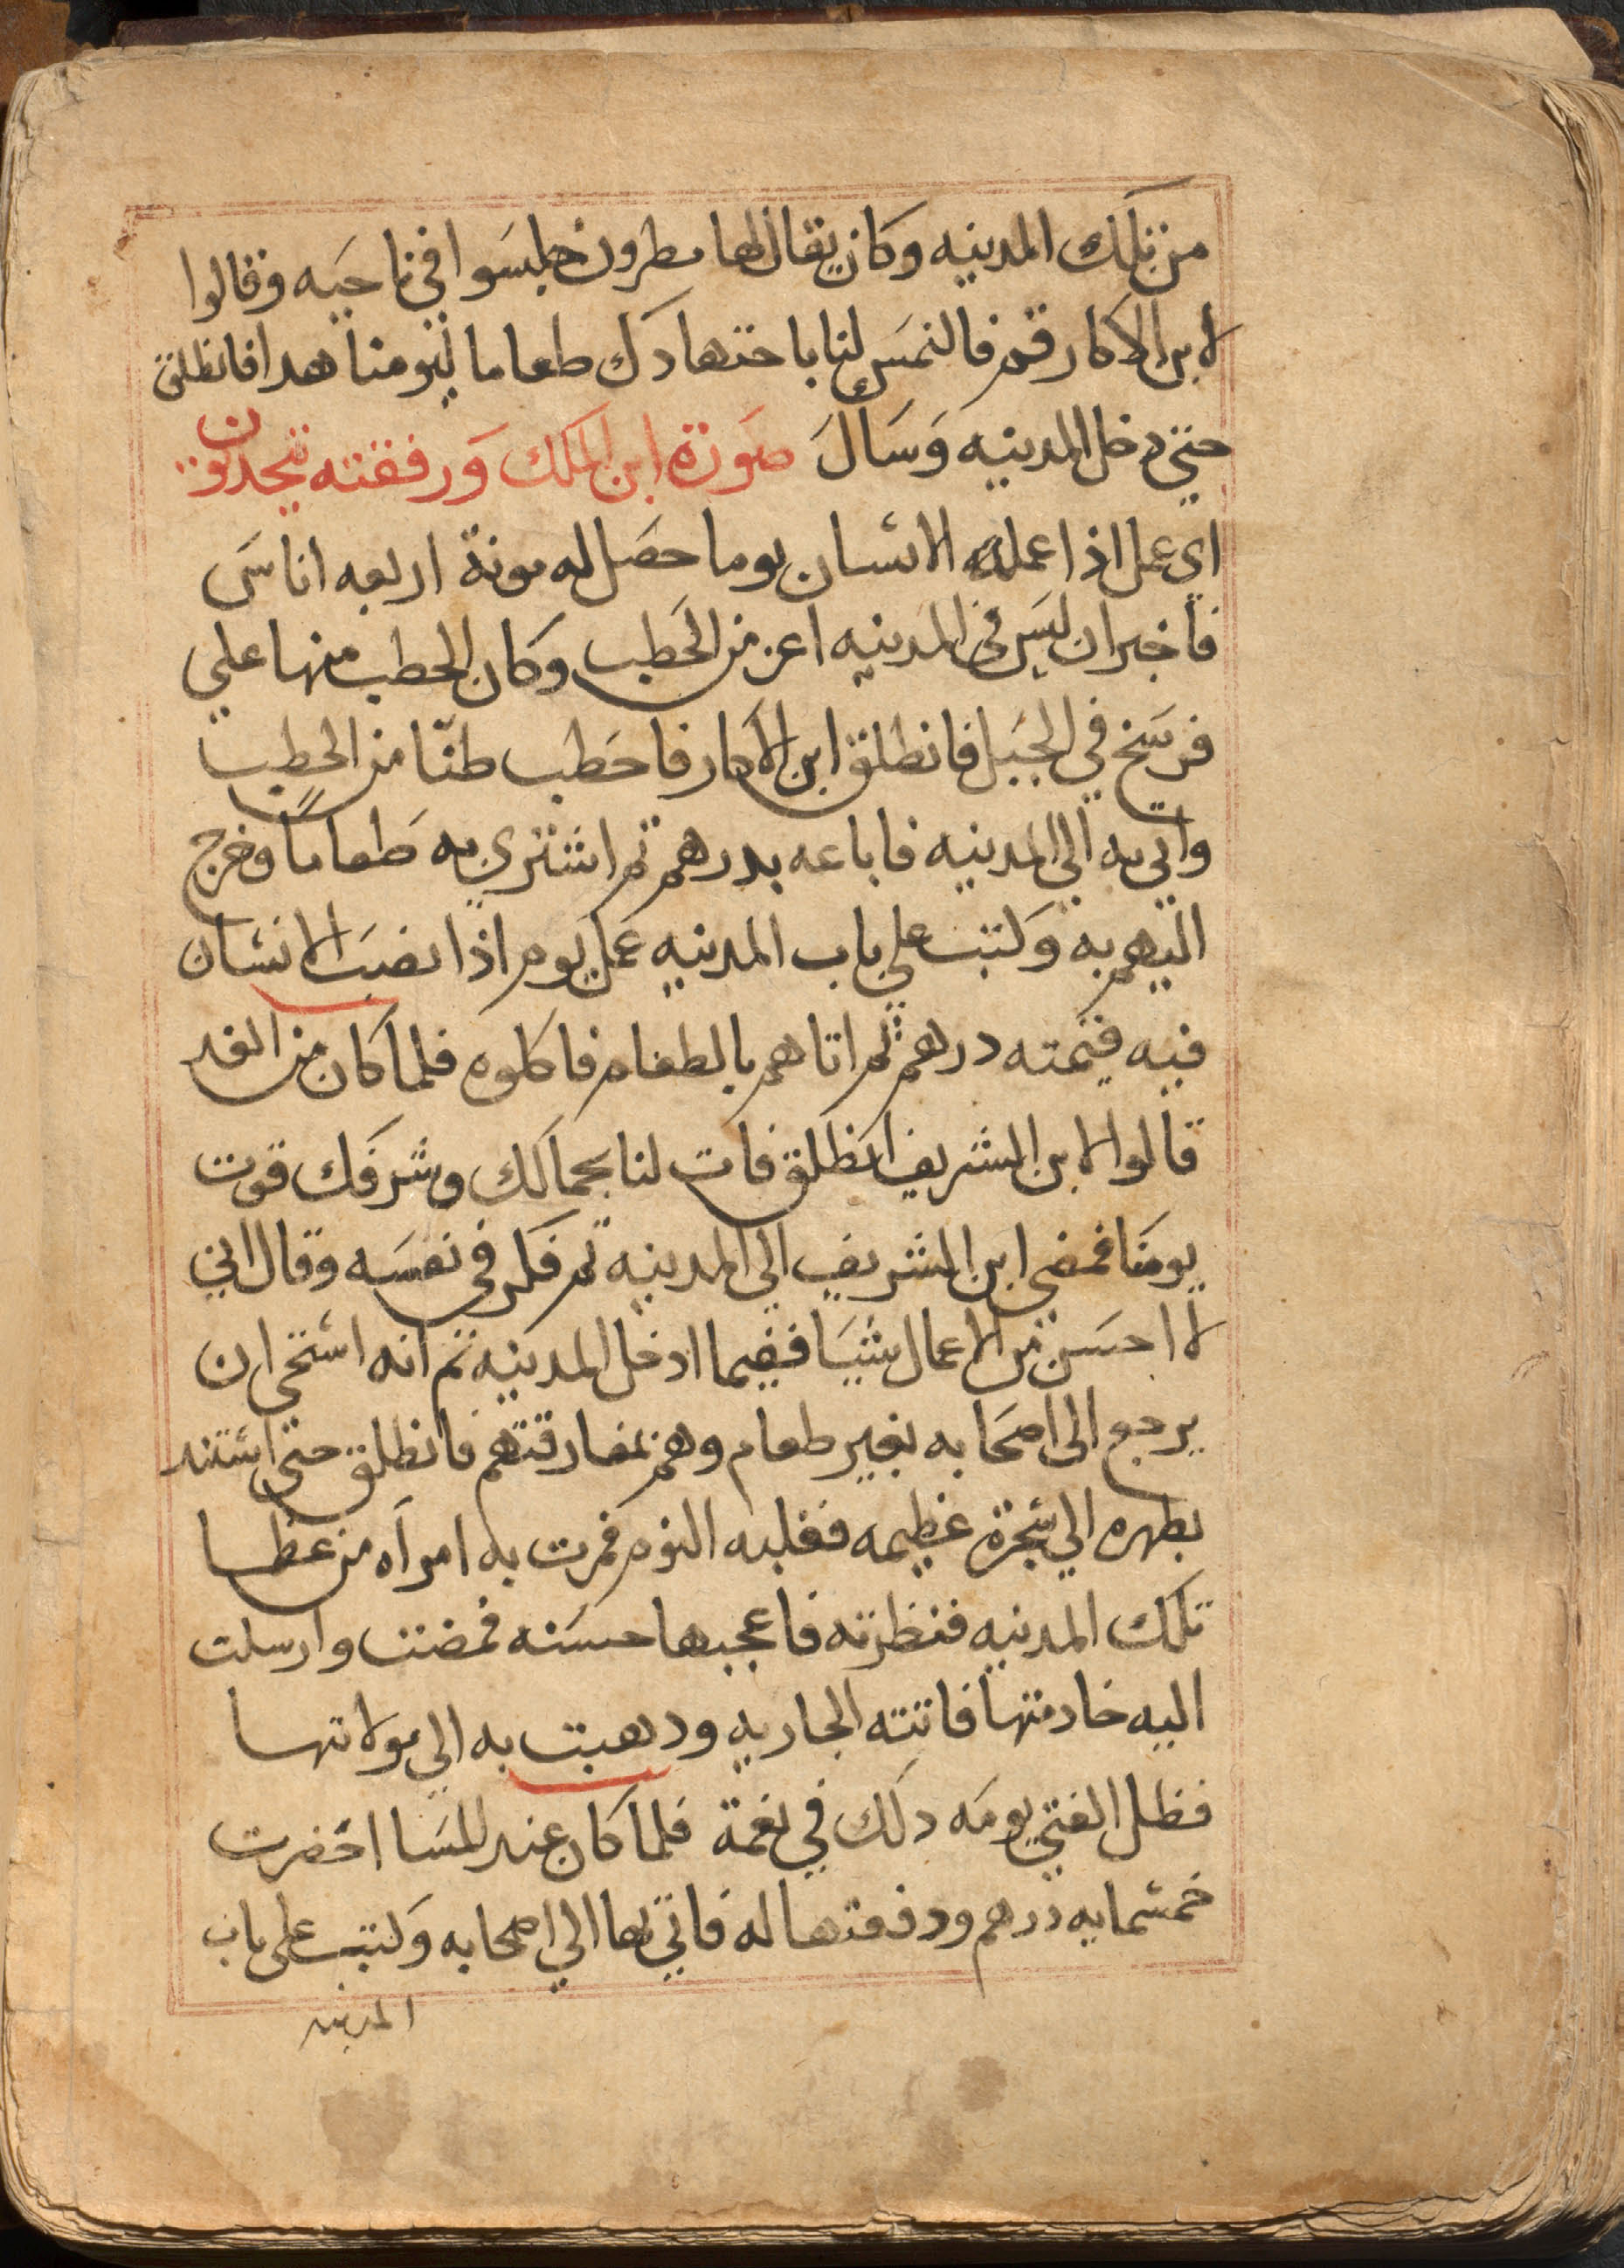 من تلك المدينه وكان يقال لها مطرون فجلسوا في ناحيه وقالوا
لابن الاكار قم فالتمس لنا باجتهادك طعاما ليومنا هدا فانطلق
حتي دخل المدينه وسال صورة ابن الملك ورفقته يتحدثون
اي عمل اذا عمله الانسان يوما حصل له مونة اربعه اناس
فاخبر ان ليس في المدينه اعز من الحطب وكان الحطب منها علي
فرسخ في الجبل فانطلق ابن الاكار فاحطب طنا من الحطب
واتي به الي المدينه فاباعه بدرهم ثم اشتري به طعاما وخرج
اليهم به وكتب علي باب المدينه عمل يوم اذا نصب الانسان
فيه قيمته درهم ثم اتاهم بالطعام فاكلوه فلما كان من الغد
قالوا لابن الشريف انطلق فات لنا بجمالك وشرفك قوت
يومنا فمضي ابن الشريف الي المدينه ثم فكر في نفسه وقال اني
لا احسن من الاعمال شيا ففيما ادخل المدينه ثم انه استحي ان
يرجع الي اصحابه بغير طعام وهم بمفارقتهم فانطلق حتي استند
بظهره الي شجرة عظيمه فغلبه النوم فمرت به امراه من عظما
تلك المدينه فنظرته فاعجبها حسنه فمضت وارسلت
اليه خادمتها فاتته الجاريه ودهبت به الي مولاتها
فظل الفتي يومه دلك في نعمة فلما كان عند المسا احضرت
خمسمايه درهم ودفعتها له فاتي بها الي اصحابه وكتب علي باب
المدينه